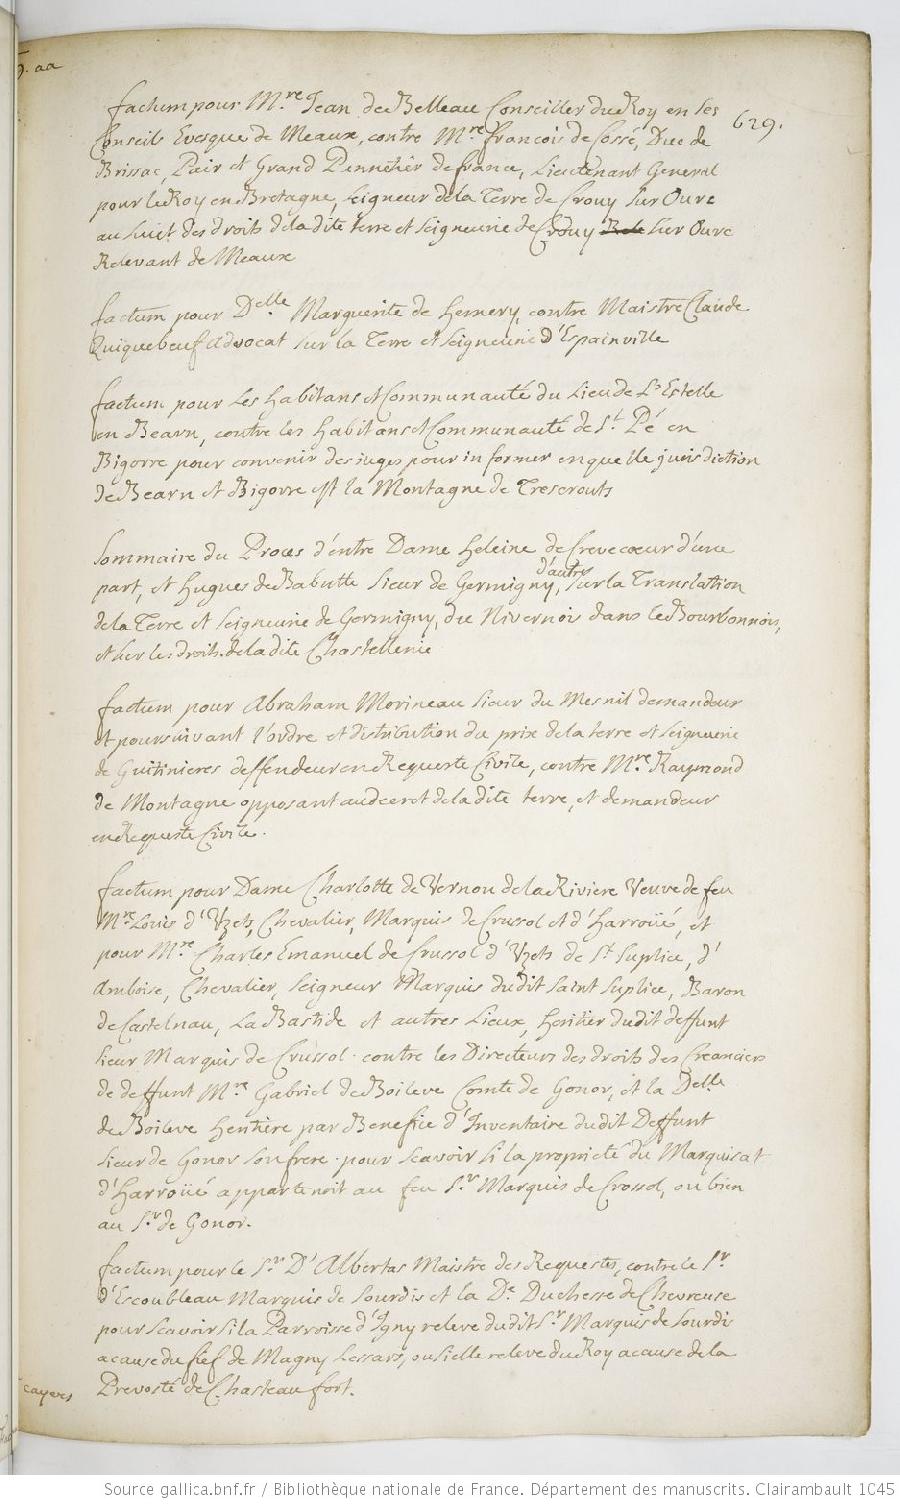 629.
factum pour M.re Jean de Belleau Conseiller du Roy en ses
Conseils Evesque de Meaux, contre M.re francois de Cossé, Duc de
Brissac, Pair et Grand Pennetier de france, Lieutenant General
pour le Roy en Bretagne, Seigneur de la Terre de Crouy sur Ourc
au suiet des droits de la dite terre et seigneurie de Crouy sur Ourc
Relevant de Meaux
factum pour D.elle Marguerite de Hemery, contre Maistre Claude
Quiquebeuf Advocat sur la Terre et seigneurie d'Espainville
factum pour les habitans et Communauté du Lieu de L'Estelle
en Bearn, contre les habitans et Communauté de S.t Pé en
Bigorre pour convenir des iuges pour informer en quelle jurisdiction
de Bearn et Bigorre est la Montagne de Trescrouts
Sommaire du Proces d'entre Dame Heleine de Crevecoeur d'une
part, et Hugues de Babutte sieur de Germigny d'autre, sur la Translation
de la Terre et seigneurie de Germigny, du Nivernois dans le Bourbonnois,
et sur les droits de la dite Chastellenie
factum pour Abraham Morineau sieur du Mesnil demandeur
et poursuivant l'ordre et distribution du prix de la terre et seigneurie
de Guitinieres deffendeur en Requeste Civile, contre M.re Raymond
de Montagne opposant au decret de la dite terre, et demandeur
en Requeste Civile.
factum pour Dame Charlotte de Vernou de la Riviere Veuve de feu
M.re Louis d'Uzets, Chevalier, Marquis de Crussol et d'Harroüé, et
pour M.re Charles Emanuel de Crussol d'Uzets de S.t Suplice, d'
Amboise, Chevalier, Seigneur Marquis dudit Saint Suplice, Baron
de Castelnau, La Bastide et autres Lieux, heritier dudit deffunt
sieur Marquis de Crussol. contre les Directeurs des droits des Creanciers
de deffunt M.re Gabriel de Boileve Comte de Gonor, et la D.elle
de Boileve heritiere par Benefice d'Inventaire dudit Deffunt
sieur de Gonor son frere. pour scavoir si la proprieté du Marquisat
d'Harroüé appartenoit au feu S.r Marquis de Crossol, ou bien
au S.r de Gonor.
factum pour le S.r D'Albertas Maistre des Requestes, contre le S.r
d'Escoubleau Marquis de Sourdis et la D.e Duchesse de Chevreuse
pour scavoir si la Parroisse d'Igny releve dudit S.r Marquis de Sourdis
a cause du fief de Magny Lessars, ou si elle releve du Roy a cause de la
Prevosté de Chasteau fort.
cayers
Source gallica.bnf.fr / Bibliothèque nationale de France. Département des manuscrits. Clairambault 1045